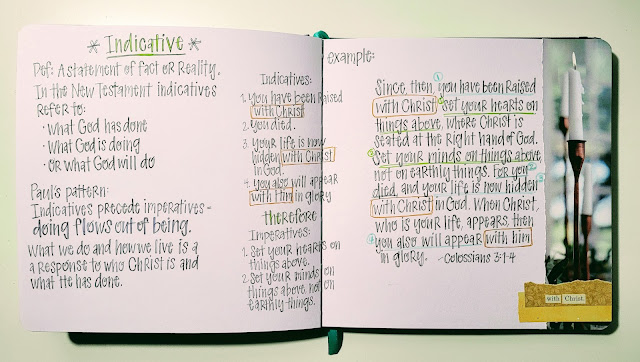 * Indicative *
Def: A statement of fact or Reality.
In the New Testament indicatives
Refer to:
• what God has done
• What God is doing
• or what God will do
Paul's pattern:
Indicatives precede imperatives -
doing flows out of being.
What we do and how we live is a
a response to who Christ is and
what He has done.
Indicatives:
1. you have been Raised
with Christ
2. you died.
3. your life is now
hidden with Christ
in God.
4. you also will appear
with him in glory
therefore
Imperatives:
1. Set your hearts on
things above.
2. Set your minds on
things above, not on
earthly things.
example:
Since, then, you have been Raised
with Christ, set your hearts on
things above, where Christ is
seated at the right hand of God.
Set your minds on things above,
not on earthly things. For you
died, and your life is now hidden
with Christ in God. When Christ,
who is your life, appears, then
you also will appear with him
in glory. -Colossians 3:1-4
with Christ